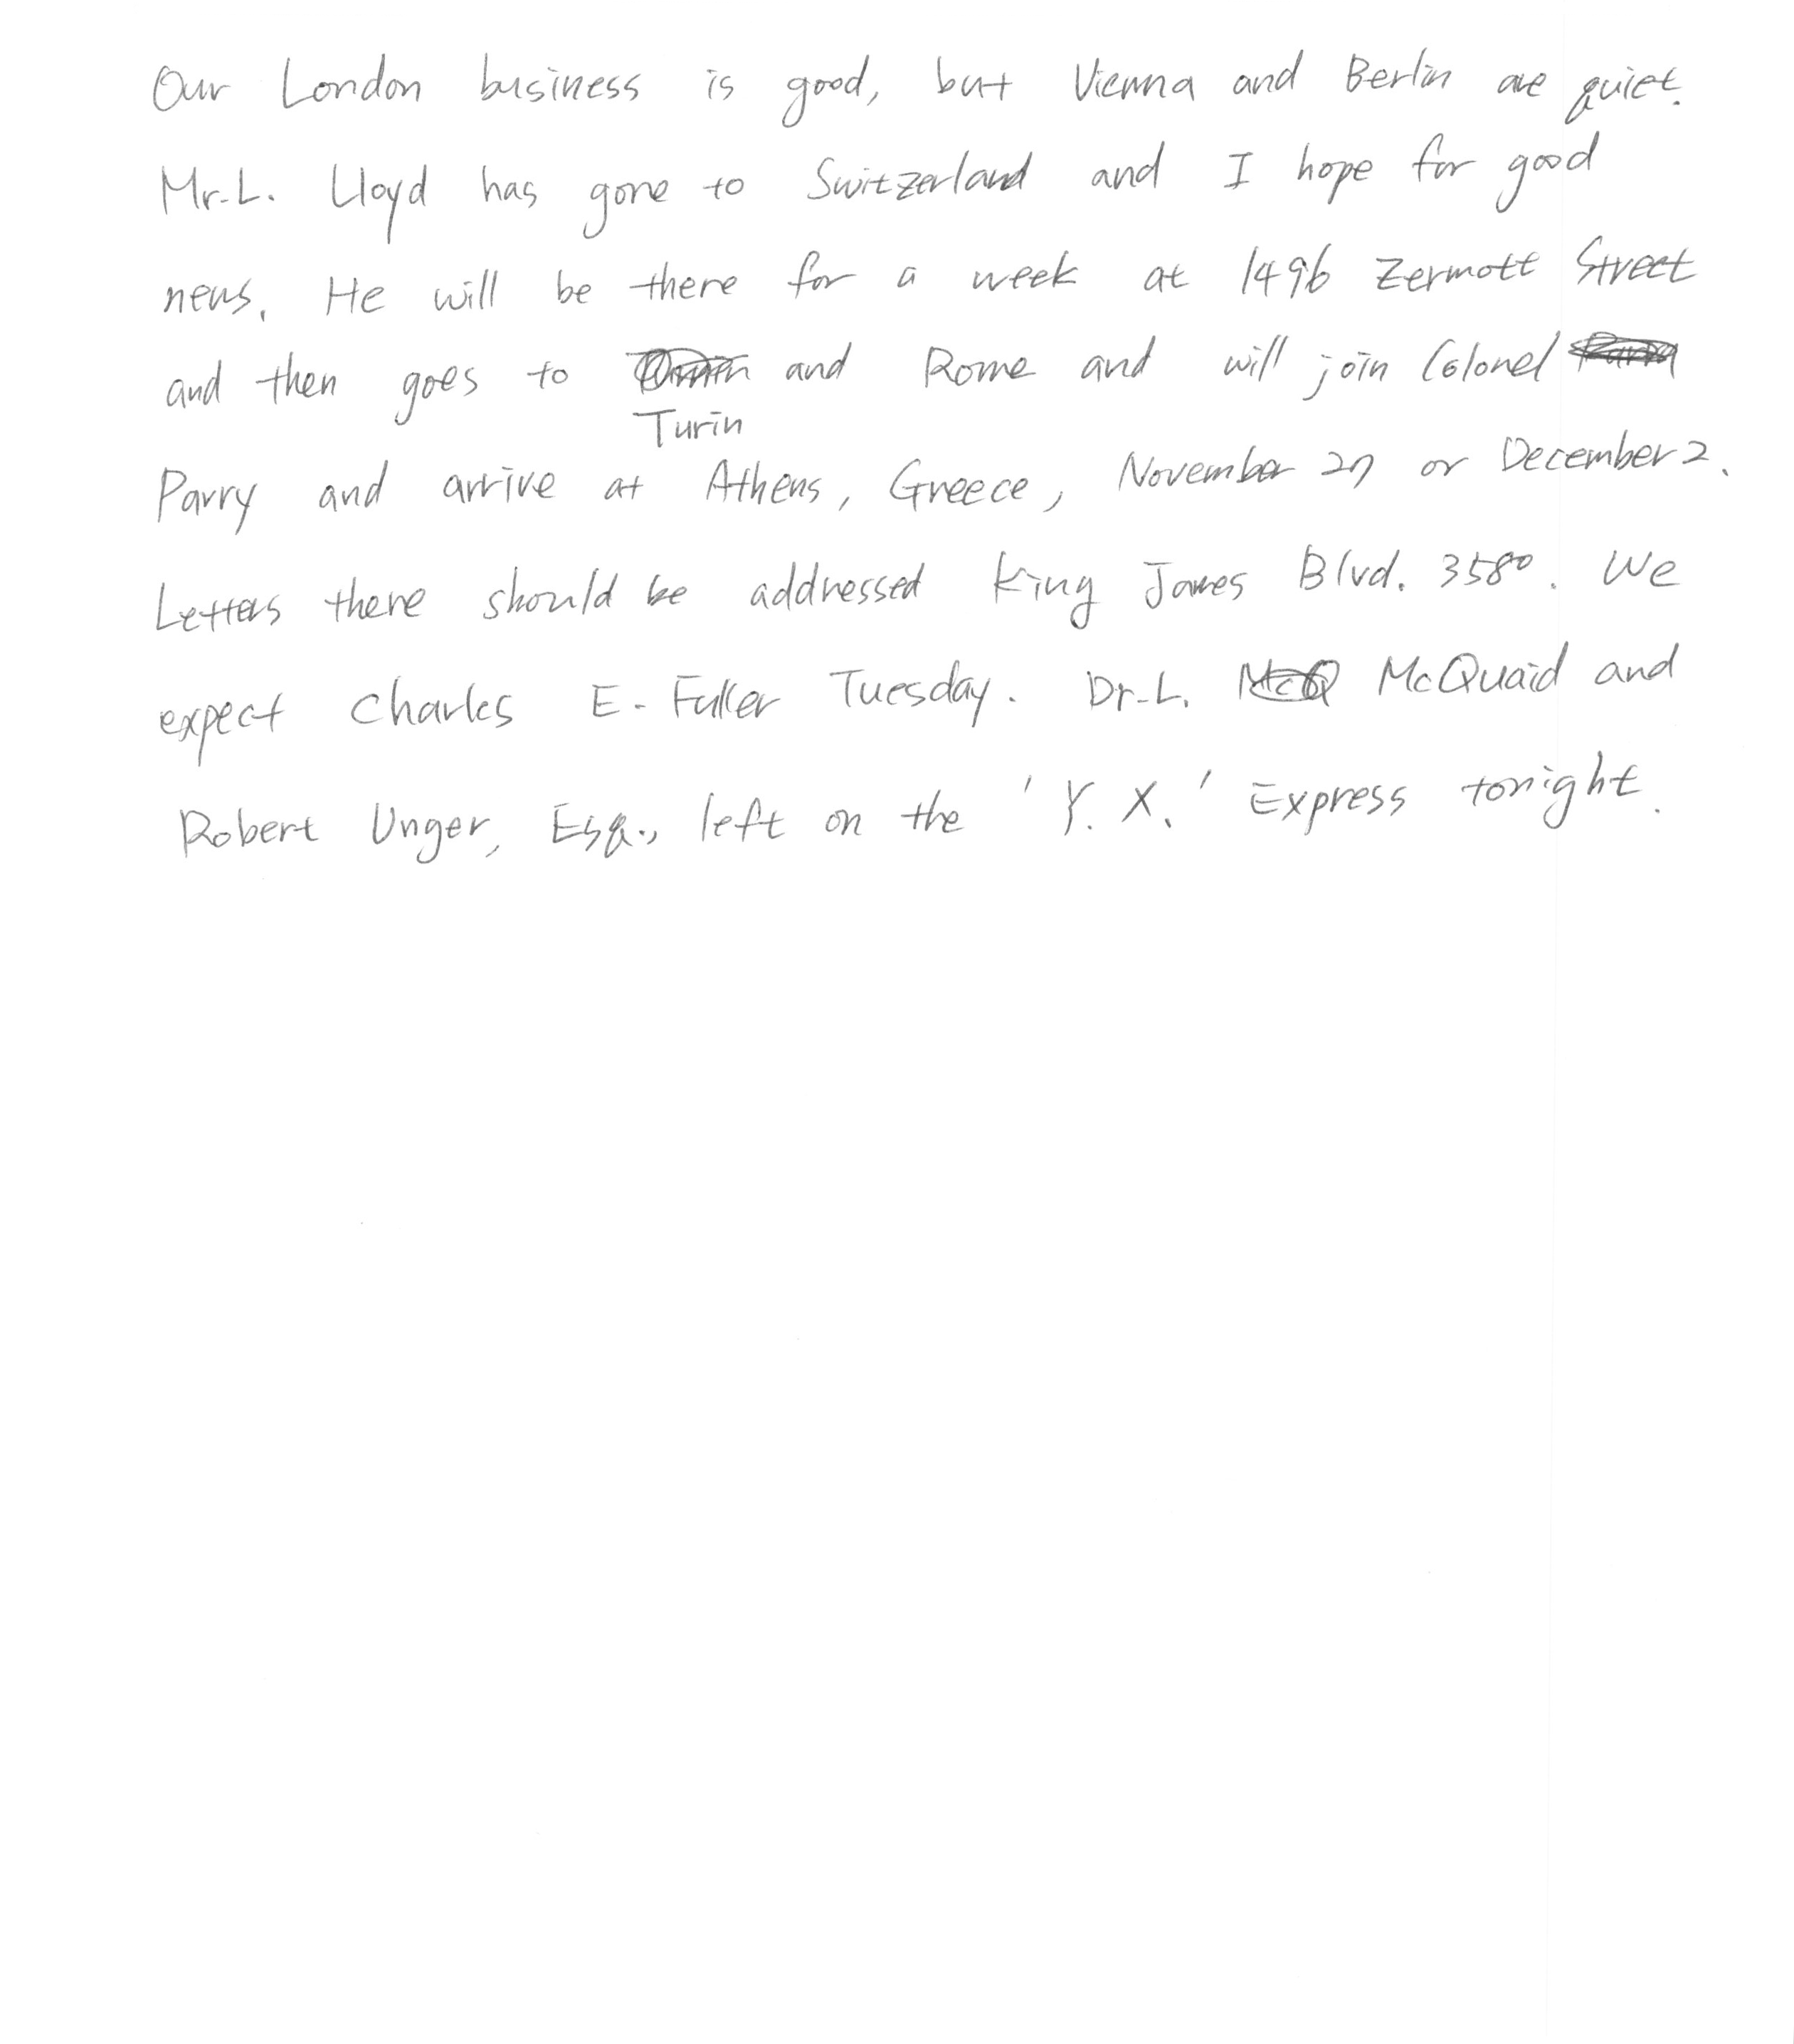 Our London business is good, but Vienna and Berlin are quiet.
Mr. L. Lloyd has gone to Switzerland and I hope for good
news. He will be there for a week at 1496 Zermott Street
and then goes to Turin and Rome and will join Colonel
Parry and arrive at Athens, Greece, November 27 or December 2.
Letters there should be addressed King James Blvd. 3580. We
expect Charles E. Fuller Tuesday. Dr. L. McQuaid and
Robert Unger, Esq., left on the 'Y. X.' Express tonight.